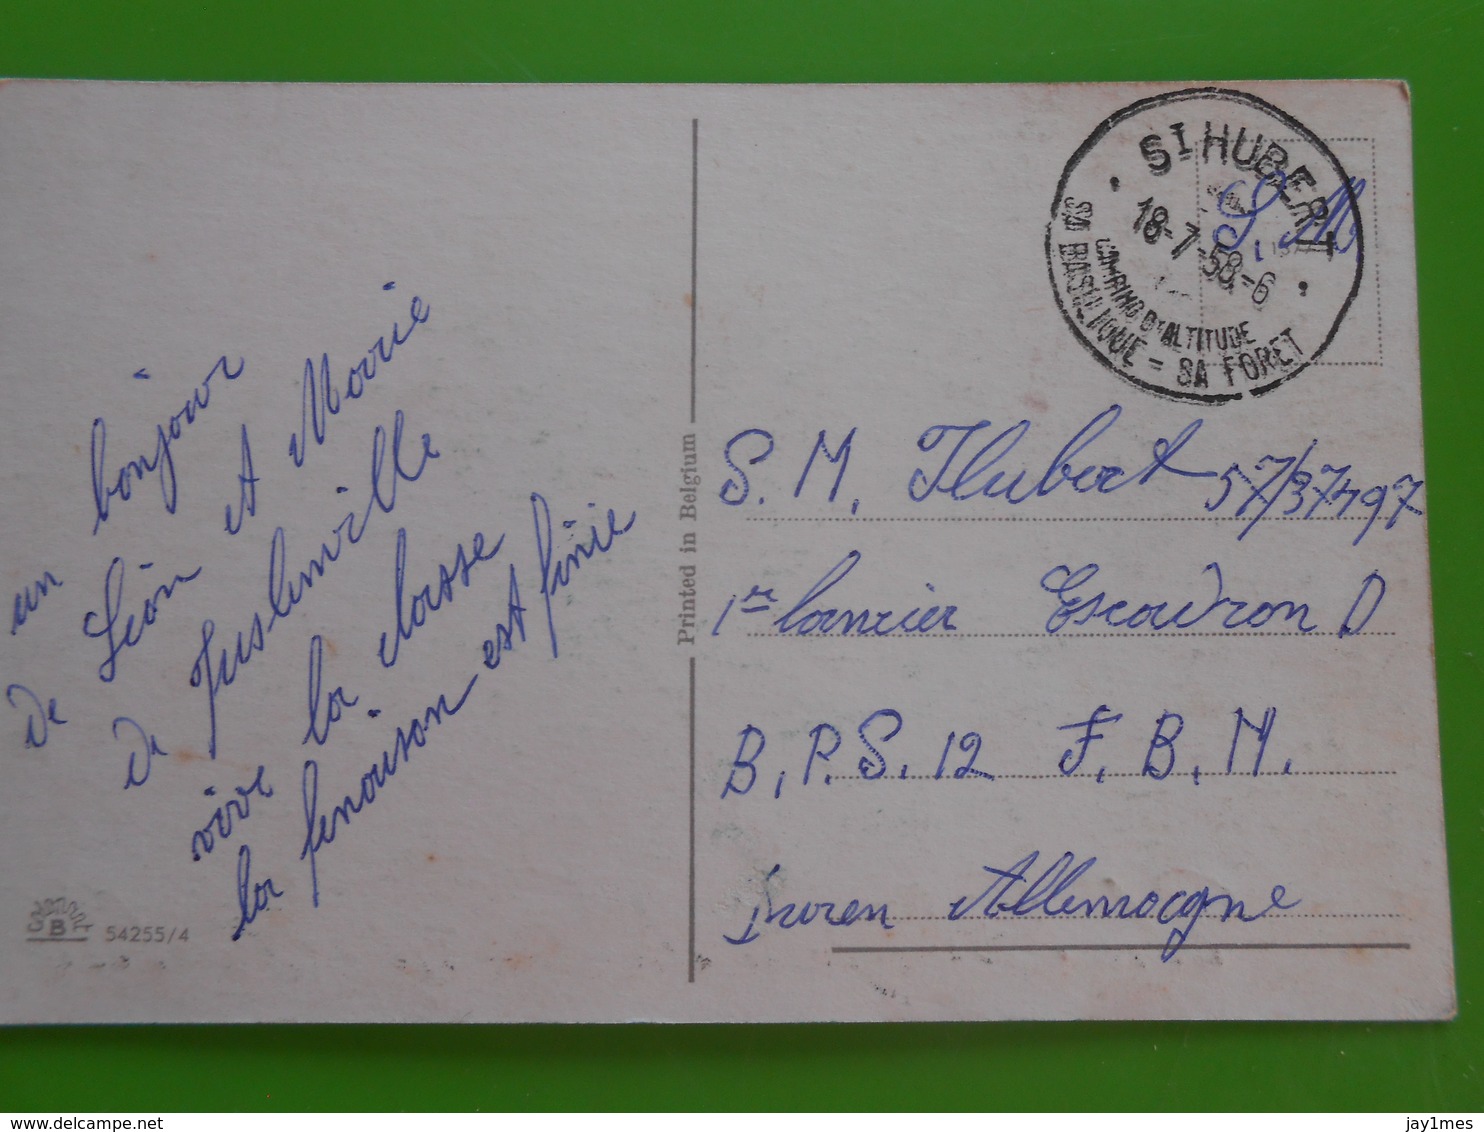 un bonjour
de Léon et Marie
de Juslenville
vive la classe
la fenaison est finie
BF 54255/4
Printed in Belgium
St HUBERT
18-7-58-6
CAMPING D'ALTITUDE
SA BASILIQUE = SA FORET
S. M.
S. M. Hubert 57/37497
1er lancier Escadron D
B.P.S. 12 F. B. M.
Duren Allemagne
delcampe.net
jay1mes